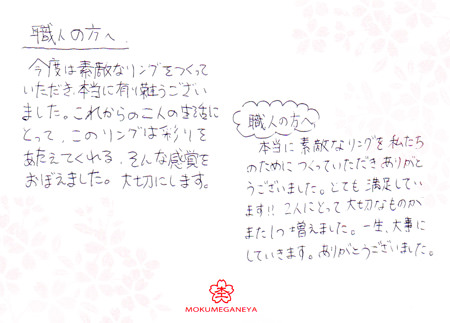 職人の方へ
今度は素敵なリングをつくって
いただき、本当に有り難うござい
ました。これからの二人の生活に
とって、このリングは彩りを
あたえてくれる、そんな感覚を
おぼえました。大切にします。
職人の方へ
本当に素敵なリングを私たち
のためにつくっていただきありがと
うございました。とても満足してい
ます!!二人にとって大切なものが
また1つ増えました。一生、大事に
していきます。ありがとうございました。
MOKUMEGANEYA